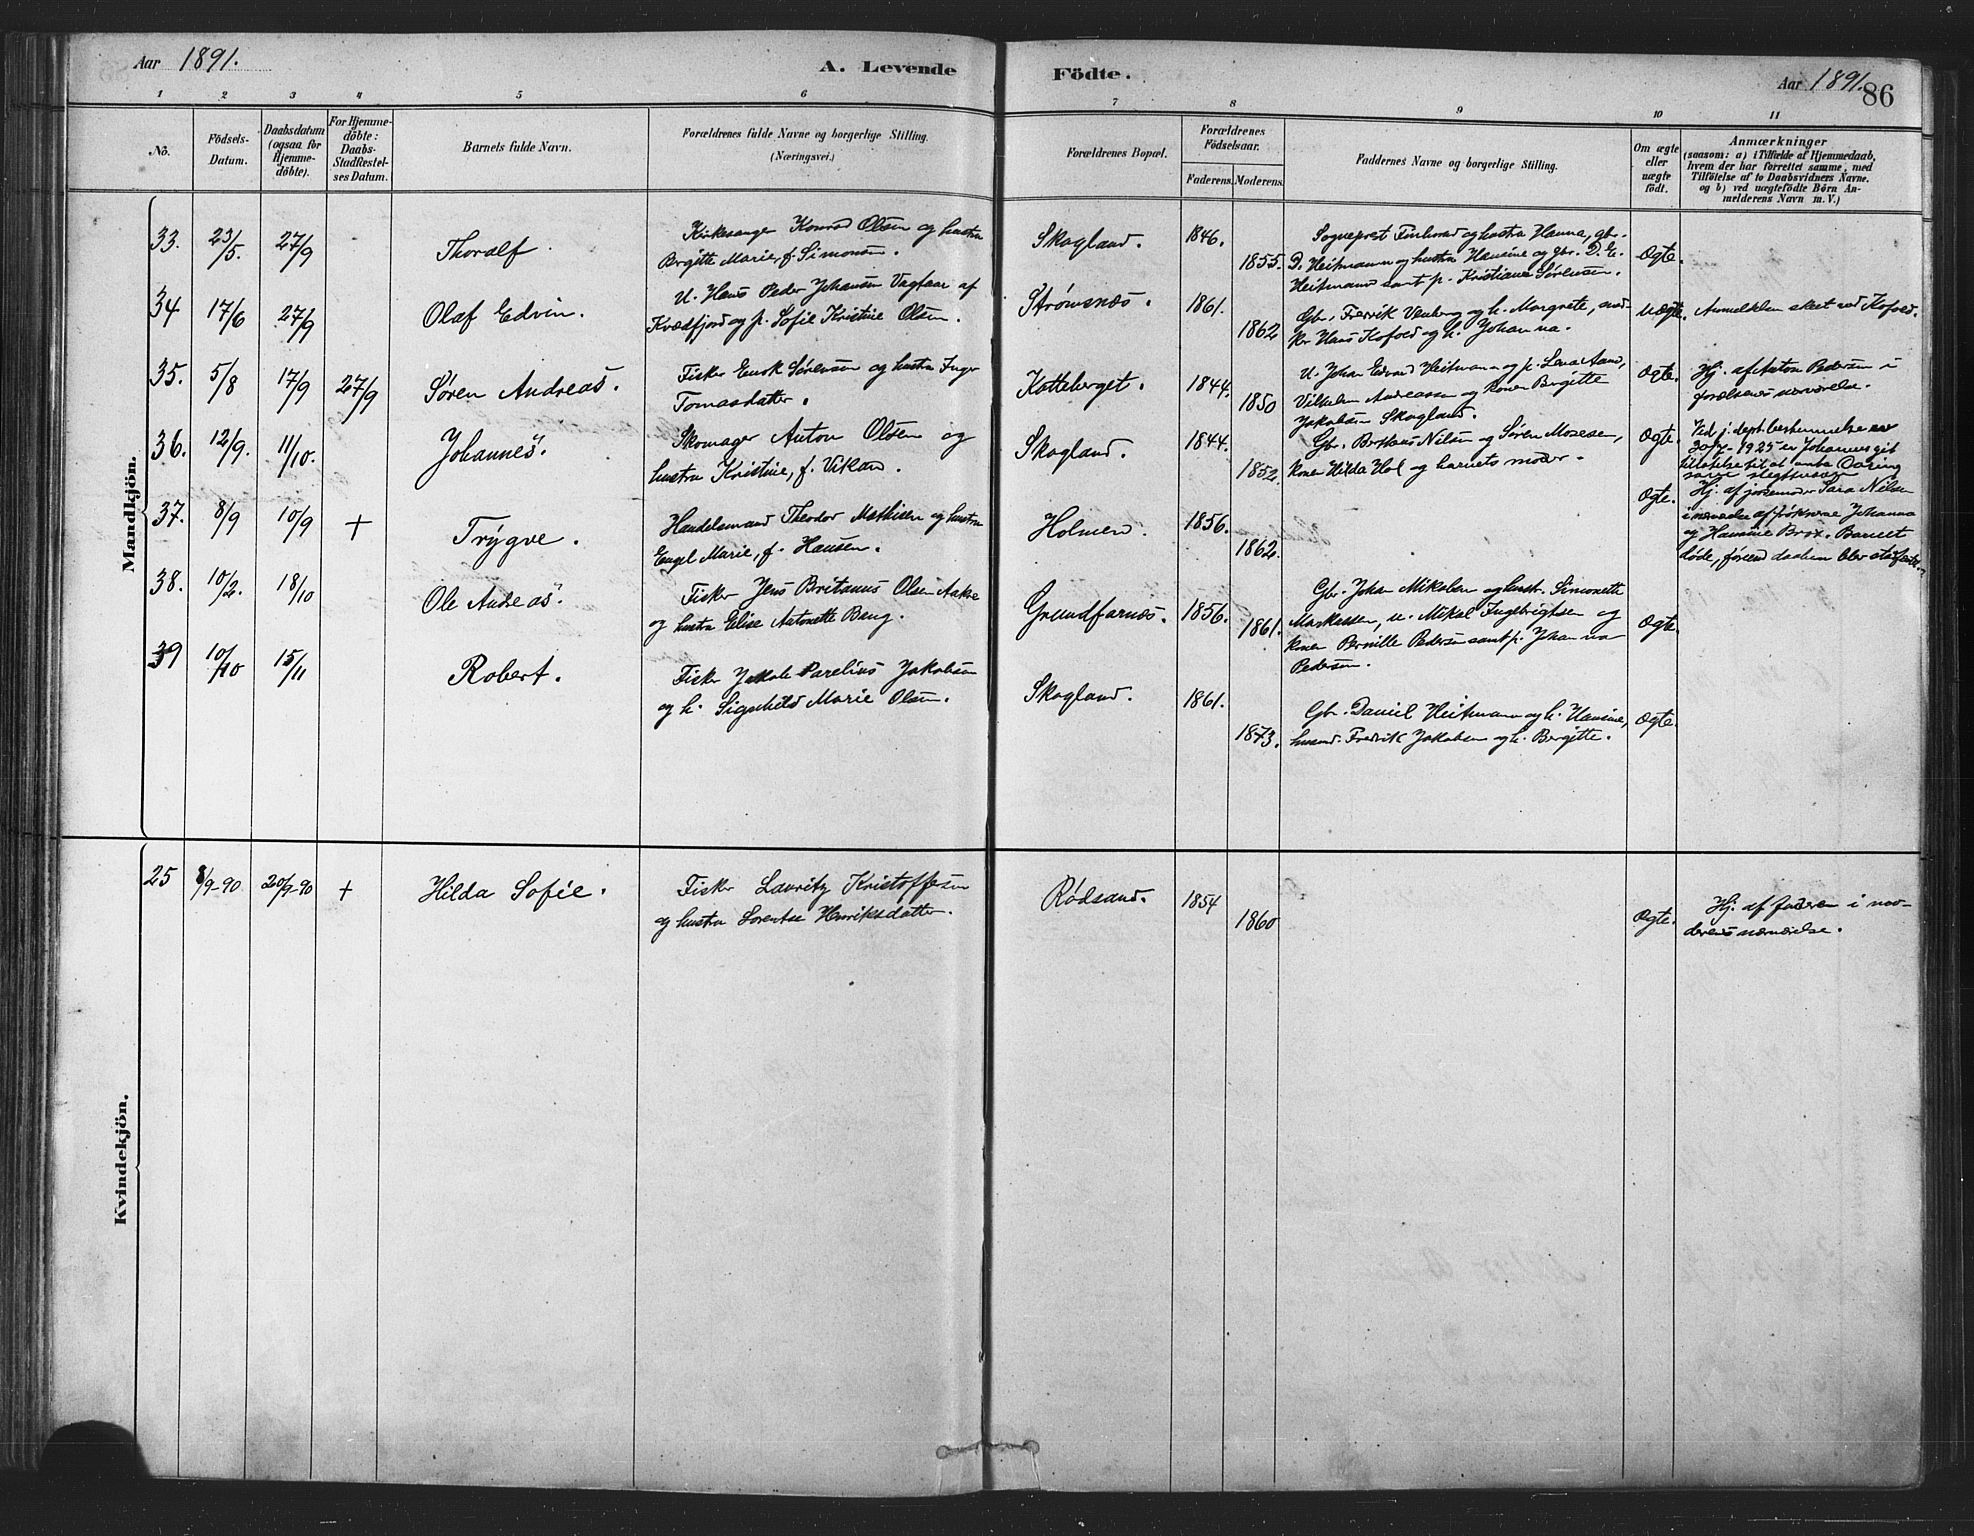 Aar 1891.
A. Levende Födte.
Aar 1891. 86
1 2 3 4 5 6 7 8 9 10 11
No.
Födsels-
Datum.
Daabsdatum
(ogsaa for
Hjemme-
döbte).
For Hjemme-
döbte:
Daabs-
Stadfæstel-
ses Datum.
Barnets fulde Navn.
Forældrenes fulde Navne og borgerlige Stilling.
(Næringsvei.)
Forældrenes Bopæl.
Forældrenes
Födselsaar.
Faderens. Moderens.
Faddernes Navne og borgerlige Stilling.
Om ægte
eller
uægte
födt.
Anmærkninger
(saasom: a) i Tilfælde af Hjemmedaab,
hvem der har forrettet samme, med
Tilföielse af to Daabsvidners Navne.
og b) ved uægtefödte Börn An-
melderens Navn m. V.)
Mandkjön.
33. 23/5. 27/9 Thoralf.
Kirkesanger Konrad Olsen og hustru
Bergitte Marie, f. Simonsen.
Skogland. 1846. 1855.
Sogneprest Finhorad og hustru Hanna, gbr.
D. Heitmann og hustru Hansine og gbr. D. E.
Heitmann samt p. Kristiane Sørensen.
Ægte.
34 17/6 27/9 Olaf Edvin.
U. Hans Peder Johansen Vagtaar af
Kvædfjord og p. Sofie Kristine Olsen.
Strømsnæs. 1861. 1862
Gbr. Fredrik Venberg og h. Margrete, sned-
ker Hans Kofoed og h. Johanna.
Uægte.
Anmeldelsen skeet ved Kofoed.
35. 5/8 17/9 27/9 Søren Andreas.
Fisker Enok Sørensen og hustru Inger
Tomasdatter.
Kotteberget. 1844. 1850
U. Johan Edvard Heitmann og p. Lena
Vilhelm Andreassen og konen Birgitte
Jakobsen Skogland.
Ægte.
Hj. af Anton Pedersen i
forældrenes nærværelse.
36. 12/9. 11/10. Johannes.
Skomager Anton Olsen og
hustru Kristine, f. Vikan.
Skogland. 1844. 1852.
Gbr. Nilsen og Søren Mosesen,
kone Hilda Hol og barnets moder.
Ægte.
Ved j. dept. bestemmelse av
30/7-1925 er Johannes git
tillatelse til at anta
som slegtsnavn
37. 8/9 10/9 + Trygve.
Handelsmand Theodor Mathisen og hustru
Engel Marie, f. Hansen.
Holmen. 1856. 1862.
Ægte.
Hj. af jordemoder Sara Nilsen
i nærvædelse af frøknerne Johanna
og Hansine Brox. Barnet
døde, førend daaben blev stadfæstet.
38. 10/2. 18/10 Ole Andreas.
Fisker Jens Britanus Olsen Aakre
og hustru Elise Antonette Bang.
Grundfarnæs. 1856. 1861.
Gbr. Johan Mikalsen og hustr. Simonette
Markussen, u. Mikal Ingebrigtsen og
kone Pernille Pedersen samt p. Johanna
Pedersen.
Ægte.
39 10/10 15/11 Robert.
Fisker Jakob Parelius Jakobsen
og h. Signhild Marie Olsen.
Skogland. 1861. 1873.
Gbr. Daniel Heitmann og h. Hansine,
husmd. Fredrik Jakobsen og h. Bergitte.
Ægte.
Kvindekjön.
25 8/9-90 20/9-90 + Hilda Sofie.
Fisker Lauritz Kristoffersen
og hustru Lorentse Henriksdatter.
Rødsand. 1854 1860
Ægte.
Hj. af faderen i moo-
derens nærværelse.